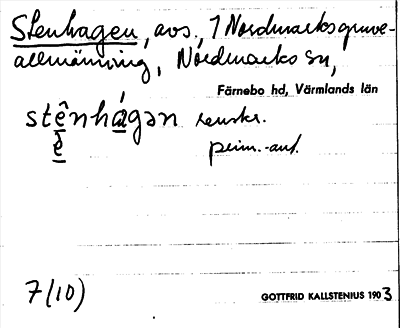 Stenhagen, avs., 1 Nordmarks gruve-
allmänning, Nordmarks sn,
Färnebo hd, Värmlands län
stênhágən renskr.
è prim.-ant.
7/(10)
GOTTFRID KALLSTENIUS 1903